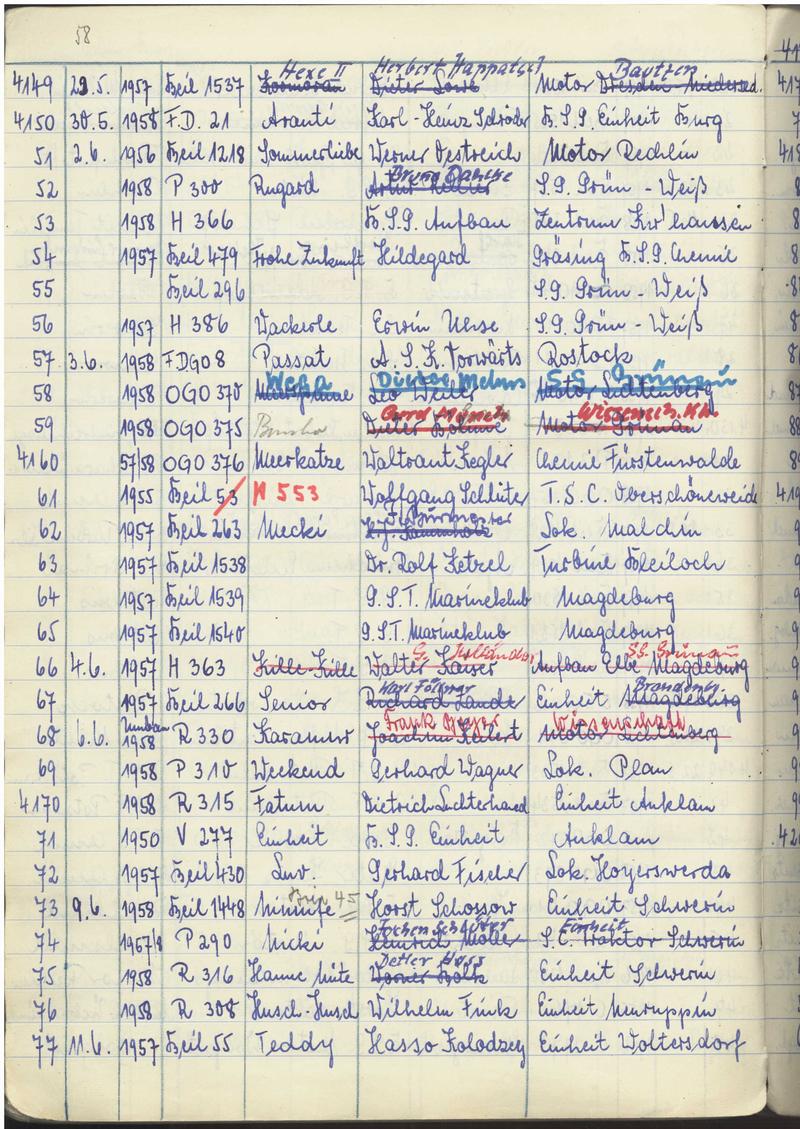 58
Hexe II Herbert Bautzen
4149 29.5. 1957 Beil 1537 Kormoran Dieter Motor Dresden-Niedersed.
4150 30.5. 1958 F.D. 21 Avanti Karl-Heinz Schröder B.S.G. Einheit Burg
51 2.6. 1956 Beil 1218 Sommerliebe Werner Oestreich Motor Rechlin
Bruno
52 1958 P 300 Rugard S.G. Grün-Weiß
53 1958 H 366 B.S.G. Aufbau Zentrum
54 1957 Beil 479 Frohe Zukunft Hildegard Gräsing B.S.G. Chemie
55 Beil 296 S.G. Grün-Weiß
56 1957 H 386 Wackerle Erwin Uhse S.G. Grün-Weiß
57 3.6. 1958 FDGO 8 Passat A.S.K. Vorwärts Rostock
Wega Dieter Mehns S.G. Grünau
58 1958 OGO 370 Leo Weiler Motor Lichtenberg
Gerd Wissensch.
59 1958 OGO 375 Dieter Böhme Motor
4160 57/58 OGO 376 Meerkatze Waltraut Ziegler Chemie Fürstenwalde
61 1955 Beil 53 H 553 Wolfgang Schlüter T.S.C. Oberschöneweide
62 1957 Beil 263 Mecki Lok. Malchin
63 1957 Beil 1538 Dr. Rolf Zetzel Turbine Bleiloch
64 1957 Beil 1539 G.S.T. Marineklub Magdeburg
65 1957 Beil 1540 G.S.T. Marineklub Magdeburg
SG. Grünau
66 4.6. 1957 H 363 Kille-Kille Walter Kaiser Aufbau Elbe Magdeburg
Karl Brandenbg.
67 1957 Beil 266 Senior Richard Lande Einheit Magdeburg
Umbau Frank Wissenschaft
68 6.6. 1958 R 330 Joachim Motor Lichtenberg
69 1958 P 310 Weekend Gerhard Wagner Lok. Plau
4170 1958 R 315 Fatum Dietrich Lichterhand Einheit Anklam
71 1950 V 277 Einheit B.S.G. Einheit Anklam
72 1957 Beil 430 Luv. Gerhard Fischer Lok. Hoyerswerda
45
73 9.6. 1958 Beil 1448 Horst Schossow Einheit Schwerin
Jochen Schlüter Einheit
74 1957/8 P 290 Nicki Heinrich Möller S.C. Traktor Schwerin
Detlef
75 1958 R 316 Hanne Nüte Werner Einheit Schwerin
76 1958 R 308 Husch-Husch Wilhelm Fink Einheit Neuruppin
77 11.6. 1957 Beil 55 Teddy Hasso Kolodzey Einheit Woltersdorf